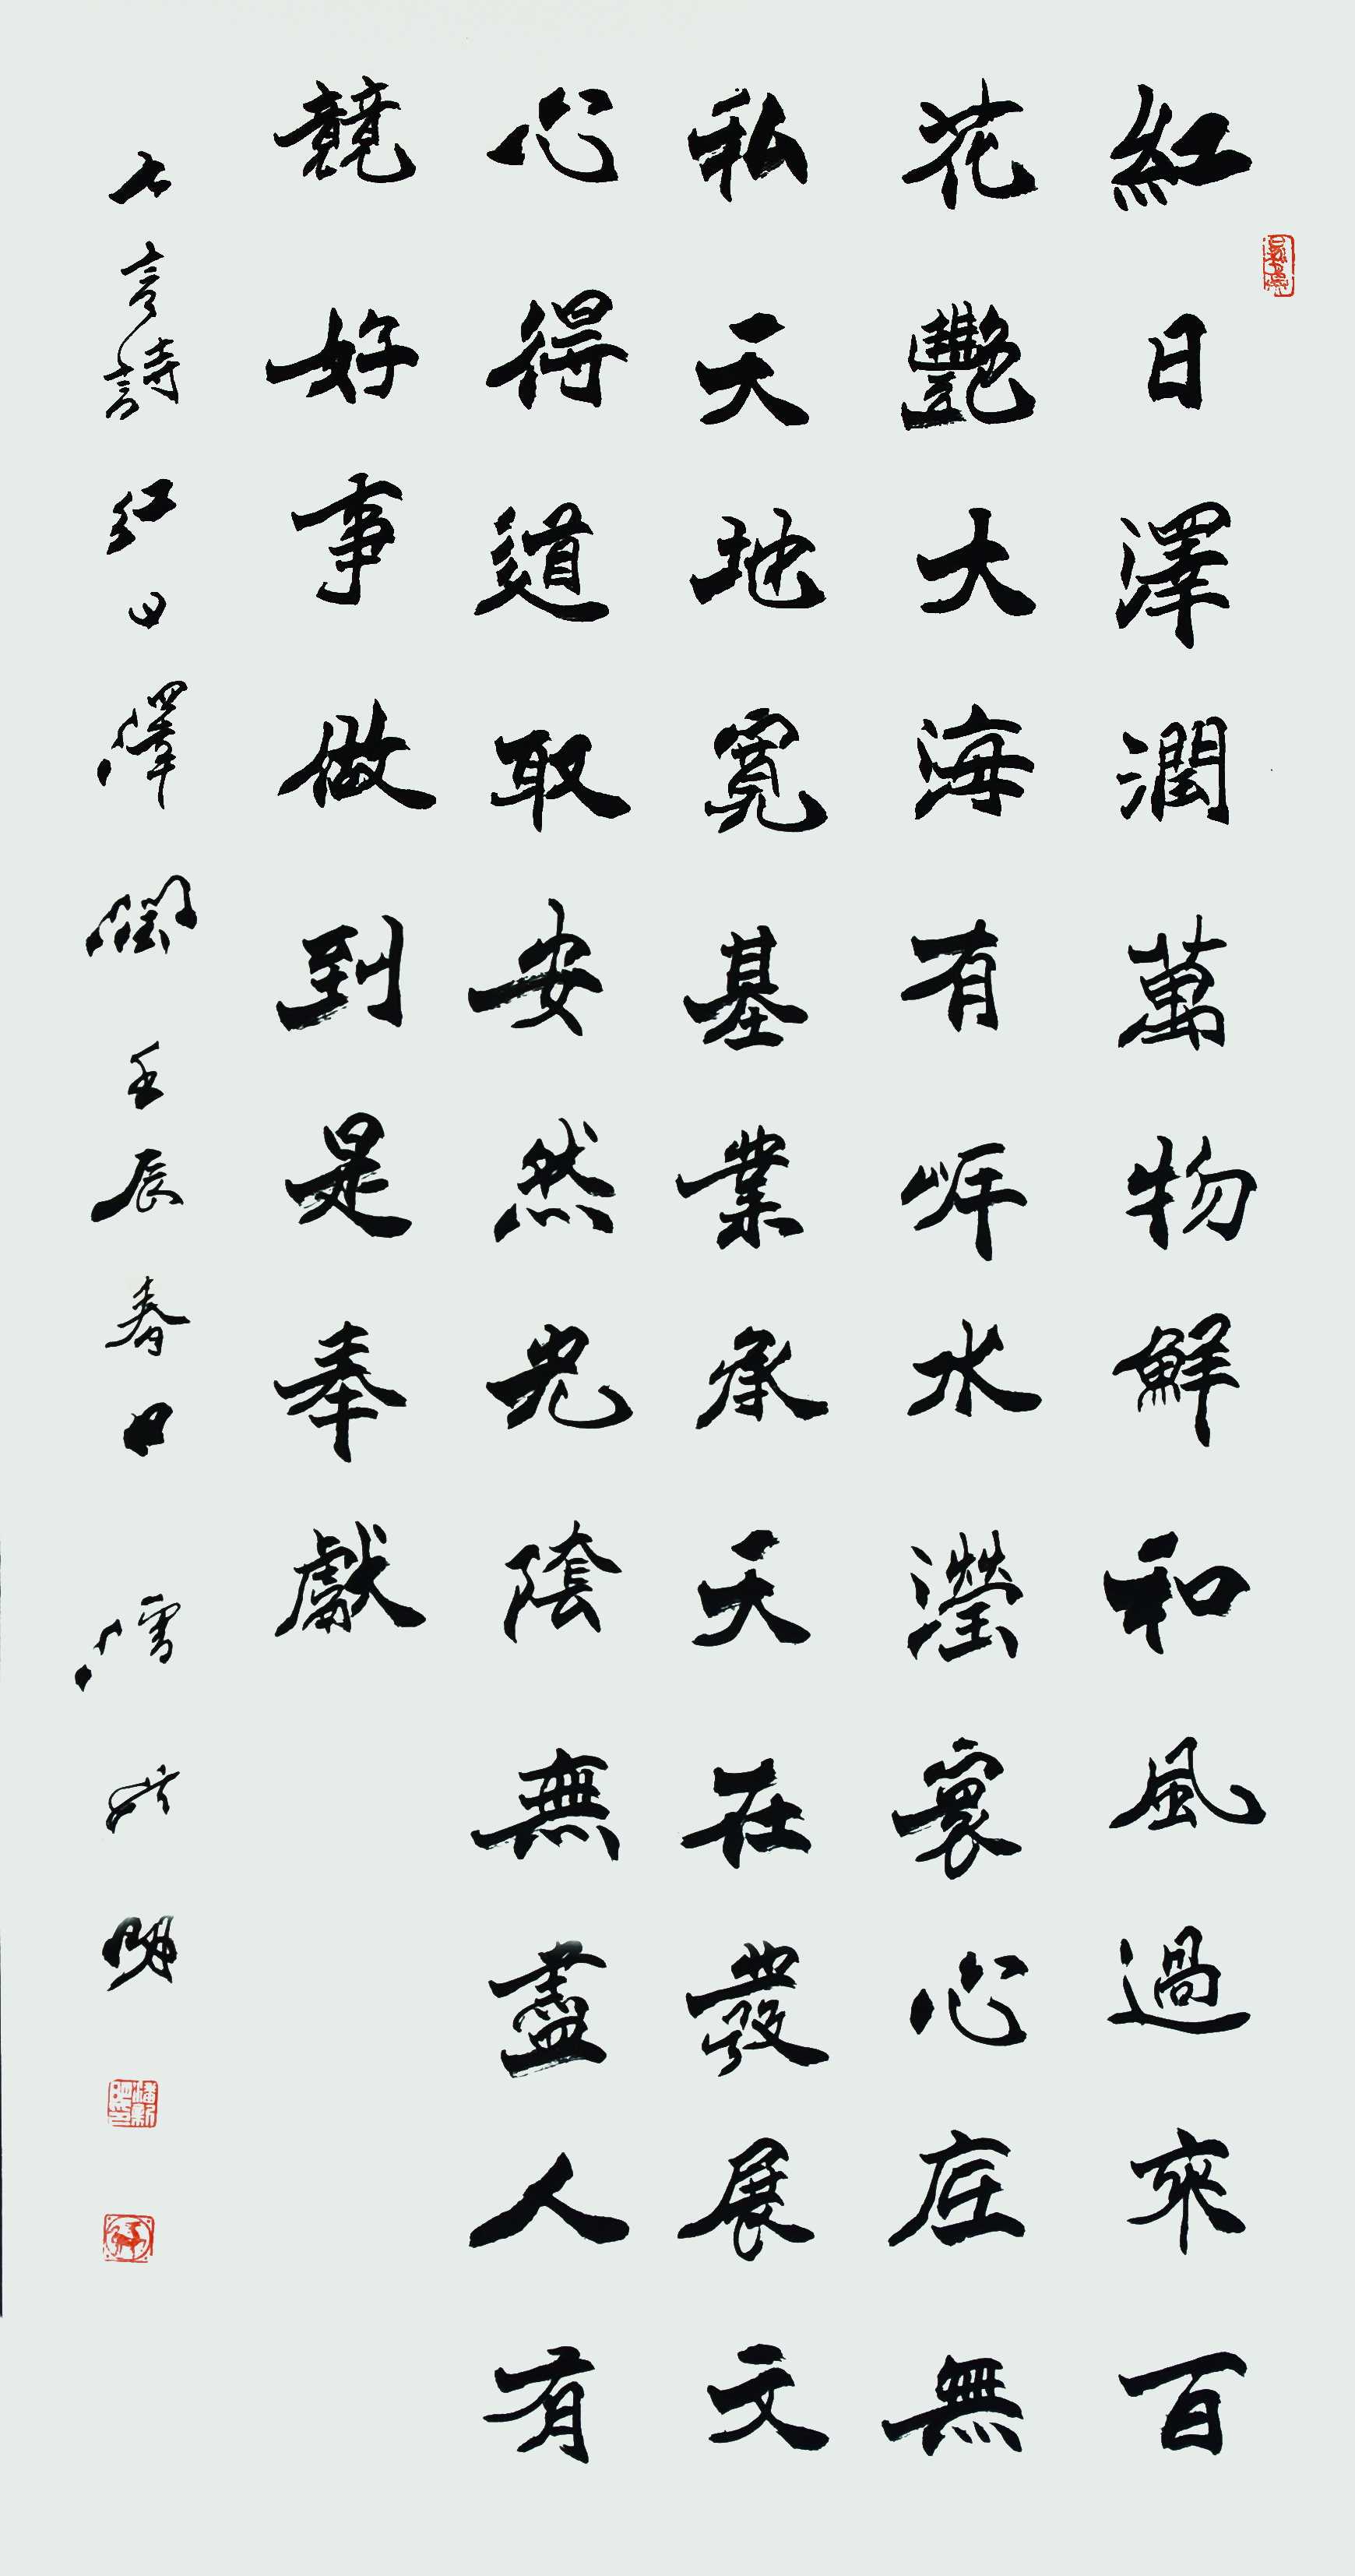 紅日澤潤萬物鮮和風過來百
花艷大海有岈水瀅寰心庄無
私天地寬基業承天在發展文
心得道取安然光陰無盡人有
競好事做到是奉獻
七言詩紅日澤潤壬辰春日